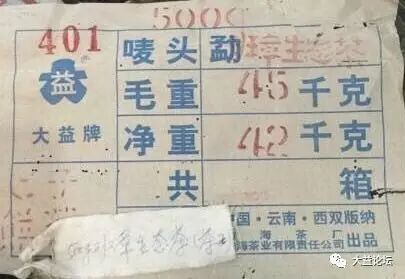 500g
401
唛头 勐 生态茶
益
毛重 45 千克
大益牌
净重 42 千克
共 箱
中国·云南·西双版纳
海茶厂
海茶业有限责任公司 出品
大益论坛